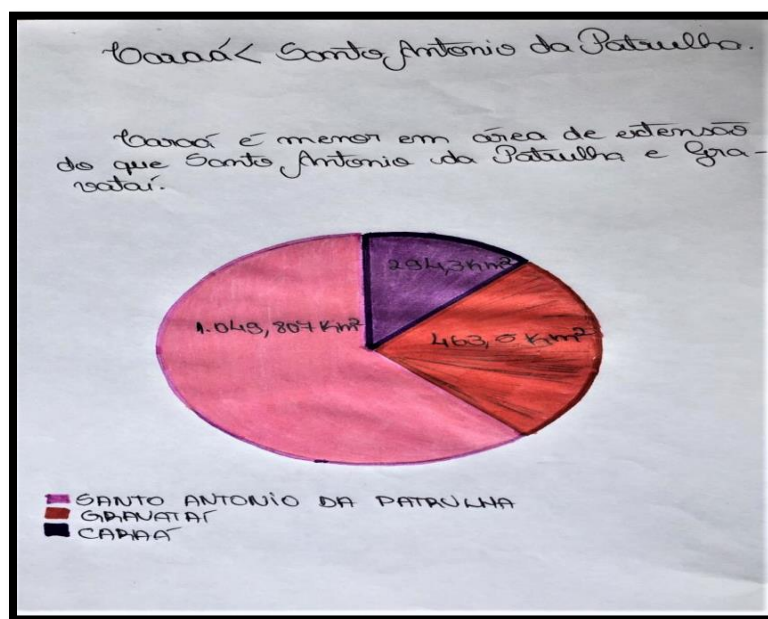 Caraá < Santo Antonio da Patrulha.
Caraá é menor em área de extensão
do que Santo Antonio da Patrulha e Gra-
vataí.
294,3 Km²
1.049,807 Km²
463,5 Km²
SANTO ANTONIO DA PATRULHA
GRAVATAÍ
CARAÁ